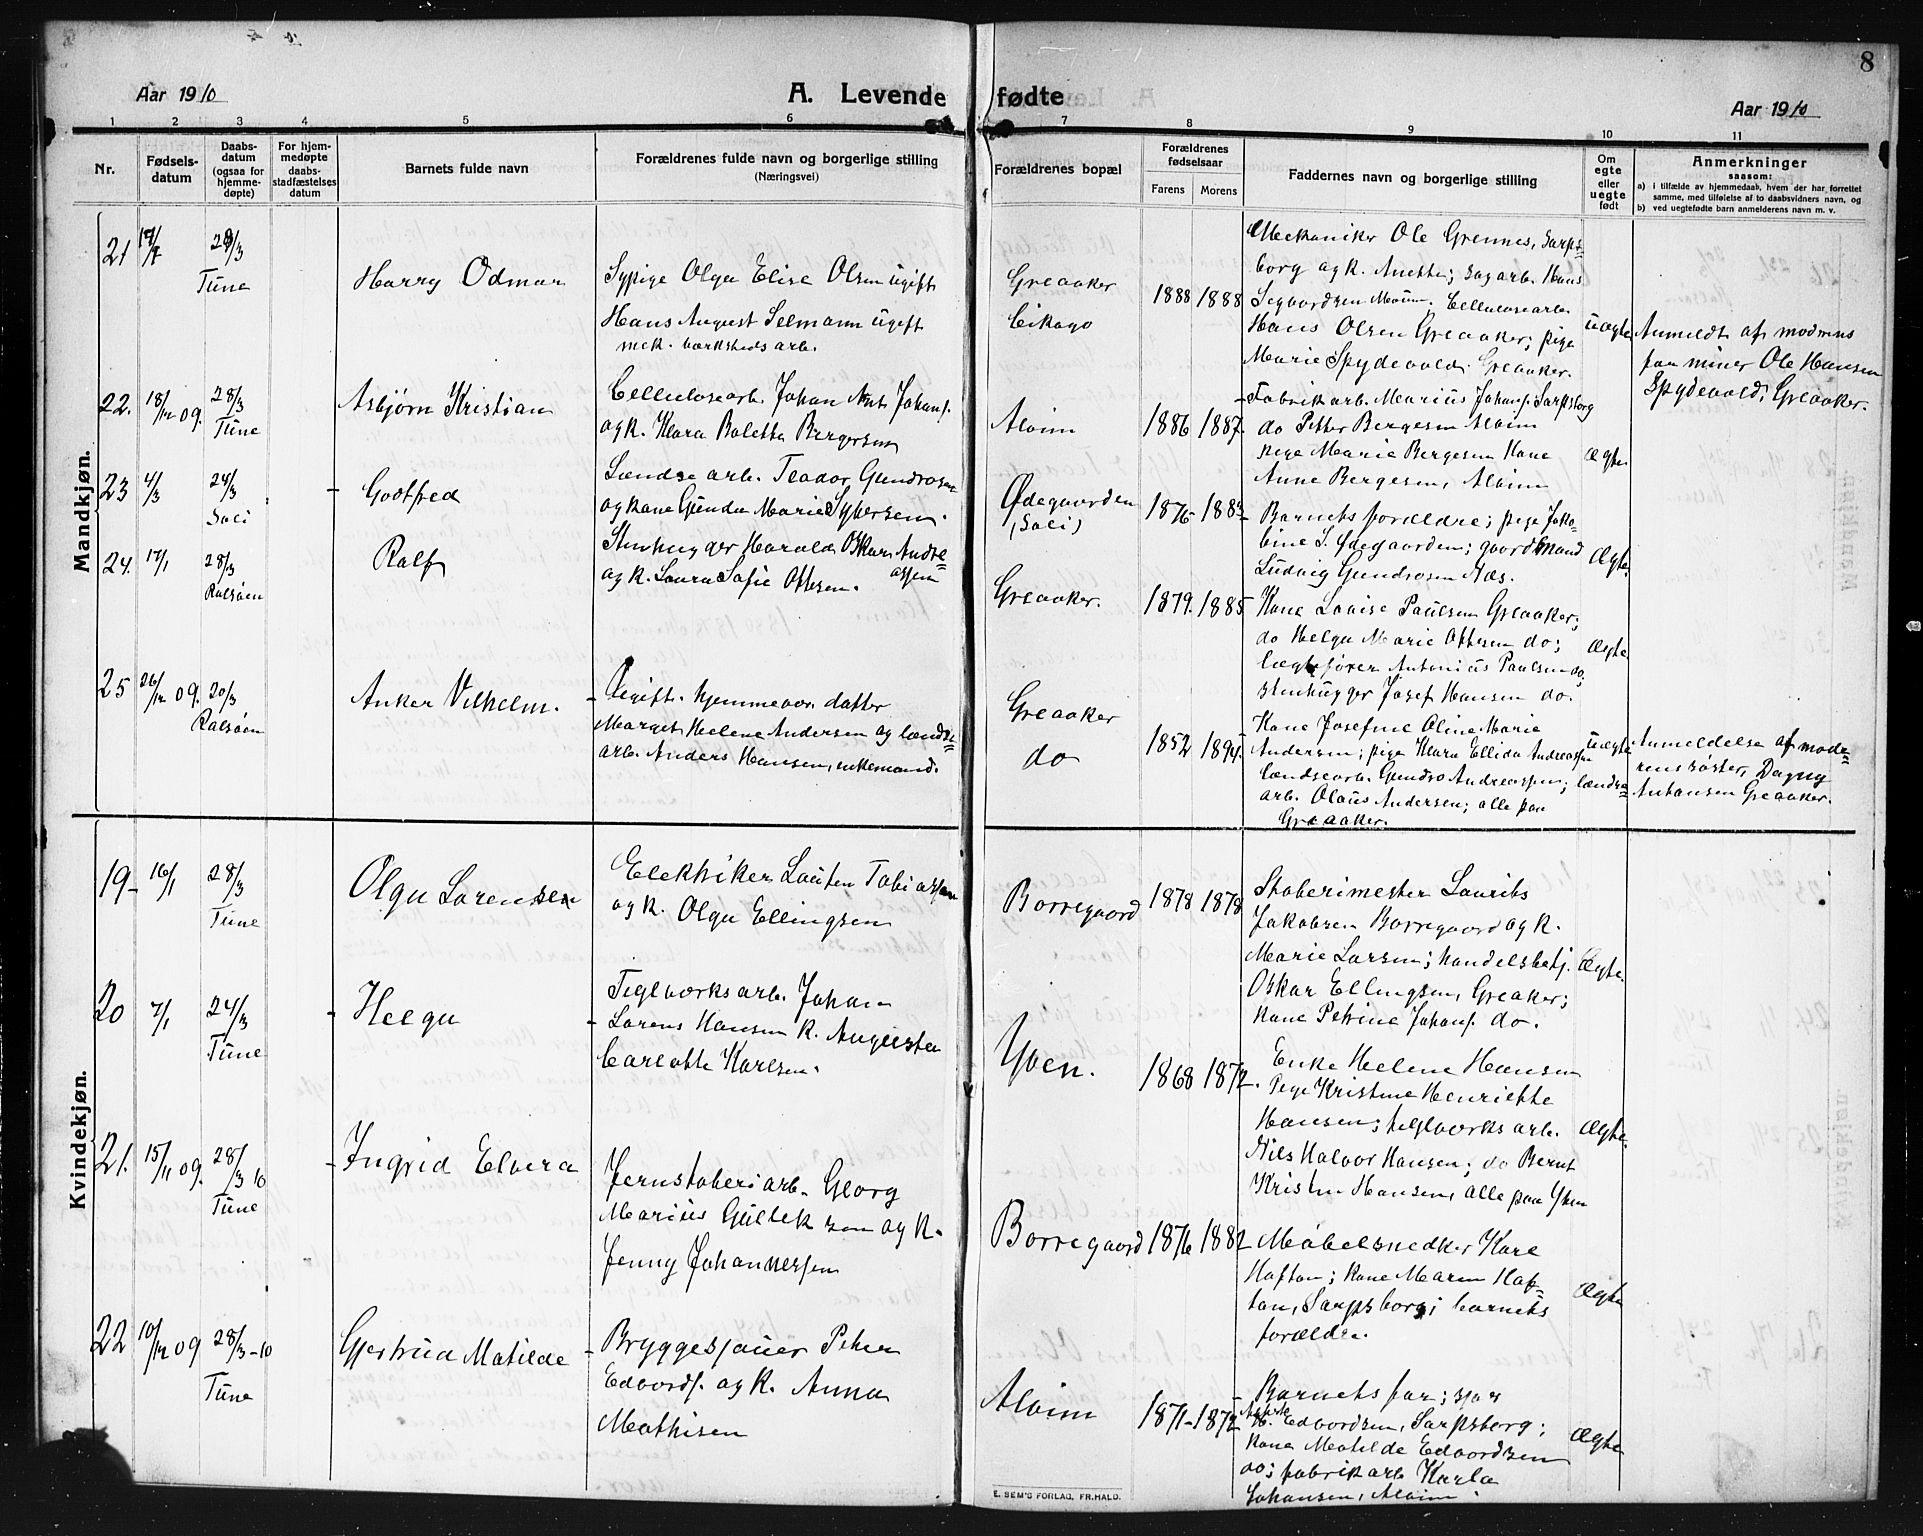 8
Aar 1910
A. Levende fødte
Aar 1910
1 2 3 4 5 6 7 8 9 10 11
Nr.
Fødsels-
datum
Daabs-
datum
(ogsaa for
hjemme-
døpte)
For hjem-
medøpte
daabs-
stadfæstelses
datum
Barnets fulde navn
Forældrenes fulde navn og borgerlige stilling
(Næringsvei)
Forældrenes bopæl
Forældrenes
fødselsaar
Farens Morens
Faddernes navn og borgerlige stilling
Om
egte
eller
uegte
født
Anmerkninger
saasom:
a) i tilfælde av hjemmedaab, hvem der har forrettet
samme, med tilføielse af to daabsvidners navn, og
b) ved uegtefødte barn anmelderens navn m. v.
Mandkjøn.
21
28/3
Tune
Harry Odmar
Sypige Olga Elise Olsen ugift
Hans August Selmann ugift
mek. værksteds arb.
Greaaker
Cikago
1888 1888
Mekaniker Ole Grennes, Sarps-
borg og k. Anette; sagarb. Hans
Sigvardsen Moum. Cellulosearb.
Hans Olsen Greaaker; pige
Marie Spydevold. Greaaker.
uægte
Anmeldt af modrens
far miner Ole Hansen
Spydevold, Greaaker.
22. 18/12 09. 28/3
Tune
Asbjørn Kristian
Cellulosearb. Johan Ant. Johans.
og k. Klara Baletta Bergersen
Alvim
1886 1887
Fabrikarb. Marius Johans. Sarpsborg
do Petter Bergesen Alvim
pige Marie Bergesen Kone
Anne Bergesen, Alvim
Ægte
23 4/3 24/3
Soli
Godtfred
Lændse arb. Teodor Gundrosen
og kone Gunda Marie Syversen.
Ødegaarden
(Soli)
1876 1883
Barnets forældre; pige Jako-
bine S. Ødegaarden; gaardmand
Ludvig Gundrosen Næs.
Ægte
24. 17/1 28/3
Rolsøen
Ralf
Stenhugger Harald Oskar Andre=
assen
og k. Laura Sofie Ottesen.
Greaaker.
1879. 1885
Kone Lovise Paulsen Greaaker;
do Helga Marie Ottesen do;
lægtefører Antonius Paulsen do,
stenhugger Josef Hansen do.
Ægte
25 26/12 09. 20/3
Rolsøen
Anker Vilhelm.
Ugift. hjemmevær. datter
Margit Helene Andersen og lændse=
arb. Anders Hansen, enkemand.
Greaaker
do
1852 1894
Kone Josefine Oline Marie
Andersen; pige Klara Ellida Andreassen
lændsearb. Gundro Andreassen; lændse=
arb. Olaus Andersen; alle paa
Greaaker.
uægte
Anmeldelse af mode=
rens søster, Dagny
Antonsen Greaaker.
Kvindekjøn.
19 16/1 28/3
Tune
Olga Lorensen
Elektriker Lauten Tobiassen
og k. Olga Ellingsen
Borregaard
1878 1878
Støberimester Laurits
Jakobsen Borregaard og k.
Marie Larsen; handelsbetj.
Oskar Ellingsen, Greaker;
kone Petrine Johans. do.
Ægte
20 7/1 24/3
Tune
Helga
Teglverksarb. Johan
Lorens Hansen k. Augusta
Carlotte Karlsen.
Yven.
1868 1872
Enke Helene Hansen
Pige Kristine Henriette
Hansen; teglverks arb.
Nils Halvor Hansen; do Bernt
Kristen Hansen, alle paa Yven
Ægte
21. 15/11 09. 28/3 10
Tune
Ingrid Elvira
Jernstøberiarb. Georg
Marius Gulleksen og k.
Jenny Johannessen
Borregaard
1876 1882
Møbelsnedker Karl
Haftan; kone Maren Haf=
tan, Sarpsborg; barnets
forældre.
Ægte
22 10/12 09 28/3 - 10
Tune
Gjertrud Matilde
Bryggesjauer Peter
Edvards. og k. Anna
Mathisen
Alvim
1871 - 1872
Barnets far; sjau
Edvardsen, Sarpsborg;
kone Matilde Edvardsen
do; fabrikarb Karla
Johansen, Alvim.
Ægte
E. SEM'S FORLAG, FR.HALD.